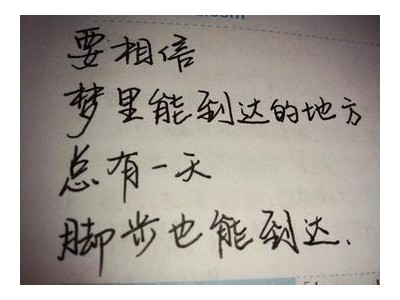 要相信
梦里能到达的地方
总有一天
脚步也能到达.